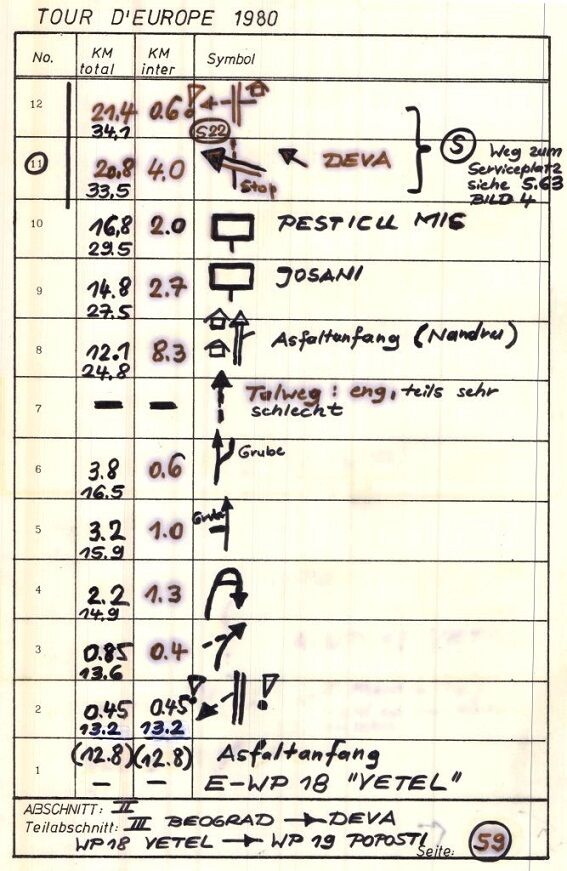 TOUR D'EUROPE 1980
No. KM total KM inter Symbol
12 21.4 0.6
34,1 S22
11 20,8 4.0 Stop DEVA
33,5
S Weg zum
Serviceplatz
siehe S.63
BILD 4
10 16,8 2.0 PESTICU MIC
29.5
9 14.8 2.7 JOSANI
27,5
8 12.1 8.3 Asfaltanfang (Nandru)
24,8
7 — — Talweg: eng, teils sehr
schlecht
6 3.8 0.6 Grube
16,5
5 3.2 1.0 Grube
15,9
4 2.2 1.3
14,9
3 0.85 0.4
13.6
2 0.45 0.45
13.2 13.2
(12.8) (12.8) Asfaltanfang
1 — — E-WP 18 "VETEL"
ABSCHNITT: II
Teilabschnitt: III BEOGRAD → DEVA
WP18 VETEL → WP 19 POPOSTI
Seite: 59